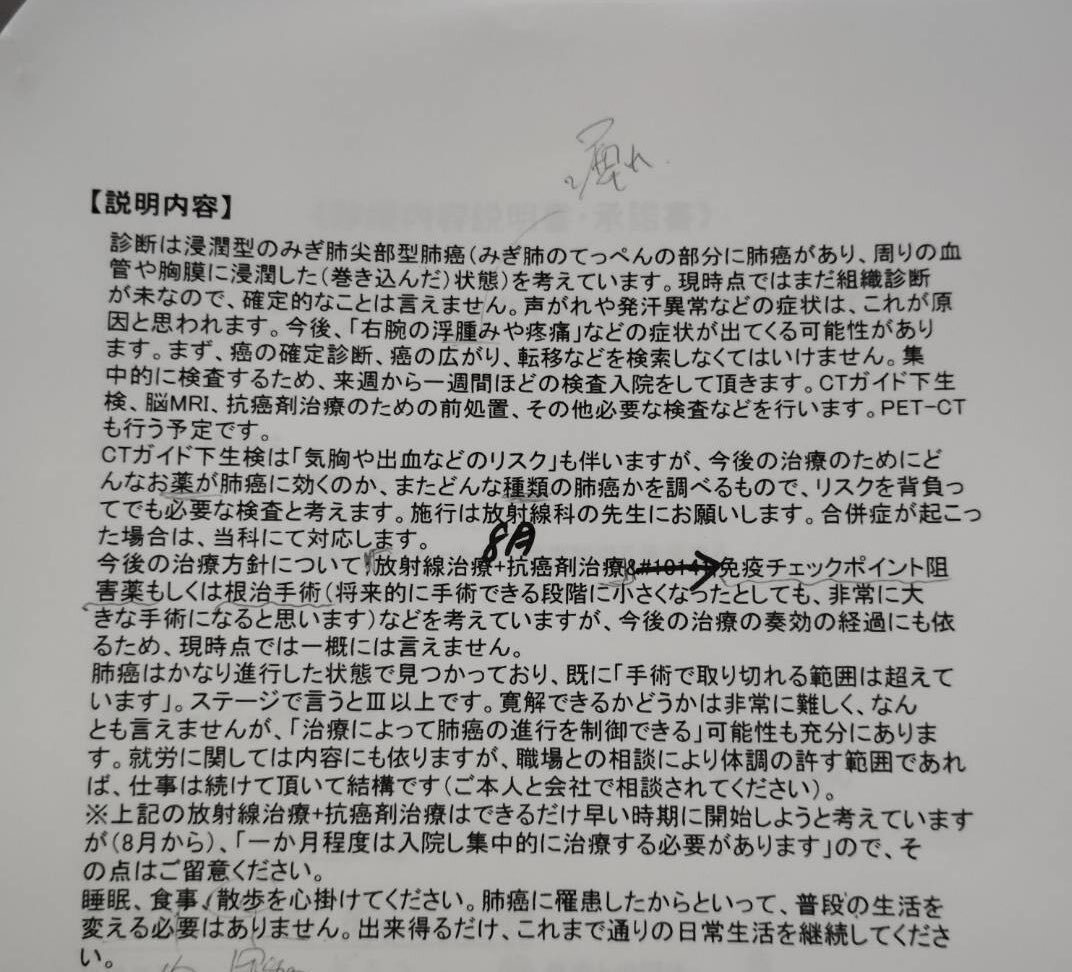 痺れ
【説明内容】
診断は浸潤型のみぎ肺尖部型肺癌(みぎ肺のてっぺんの部分に肺癌があり、周りの血
管や胸膜に浸潤した(巻き込んだ)状態)を考えています。現時点ではまだ組織診断
が未なので、確定的なことは言えません。声がれや発汗異常などの症状は、これが原
因と思われます。今後、「右腕の浮腫みや疼痛」などの症状が出てくる可能性があり
ます。まず、癌の確定診断、癌の広がり、転移などを検索しなくてはいけません。集
中的に検査するため、来週から一週間ほどの検査入院をして頂きます。CTガイド下生
検、脳MRI、抗癌剤治療のための前処置、その他必要な検査などを行います。PET-CT
も行う予定です。
CTガイド下生検は「気胸や出血などのリスク」も伴いますが、今後の治療のためにど
んなお薬が肺癌に効くのか、またどんな種類の肺癌かを調べるもので、リスクを背負っ
てでも必要な検査と考えます。施行は放射線科の先生にお願いします。合併症が起こっ
た場合は、当科にて対応します。
8月
今後の治療方針について、放射線治療+抗癌剤治療&#10141;免疫チェックポイント阻
害薬もしくは根治手術(将来的に手術できる段階に小さくなったとしても、非常に大
きな手術になると思います)などを考えていますが、今後の治療の奏効の経過にも依
るため、現時点では一概には言えません。
肺癌はかなり進行した状態で見つかっており、既に「手術で取り切れる範囲は超えて
います」。ステージで言うとⅢ以上です。寛解できるかどうかは非常に難しく、なん
とも言えませんが、「治療によって肺癌の進行を制御できる」可能性も充分にありま
す。就労に関しては内容にも依りますが、職場との相談により体調の許す範囲であれ
ば、仕事は続けて頂いて結構です(ご本人と会社で相談されてください)。
※上記の放射線治療+抗癌剤治療はできるだけ早い時期に開始しようと考えています
が(8月から)、「一か月程度は入院し集中的に治療する必要があります」ので、そ
の点はご留意ください。
睡眠、食事、散歩を心掛けてください。肺癌に罹患したからといって、普段の生活を
変える必要はありません。出来得るだけ、これまで通りの日常生活を継続してくださ
い。